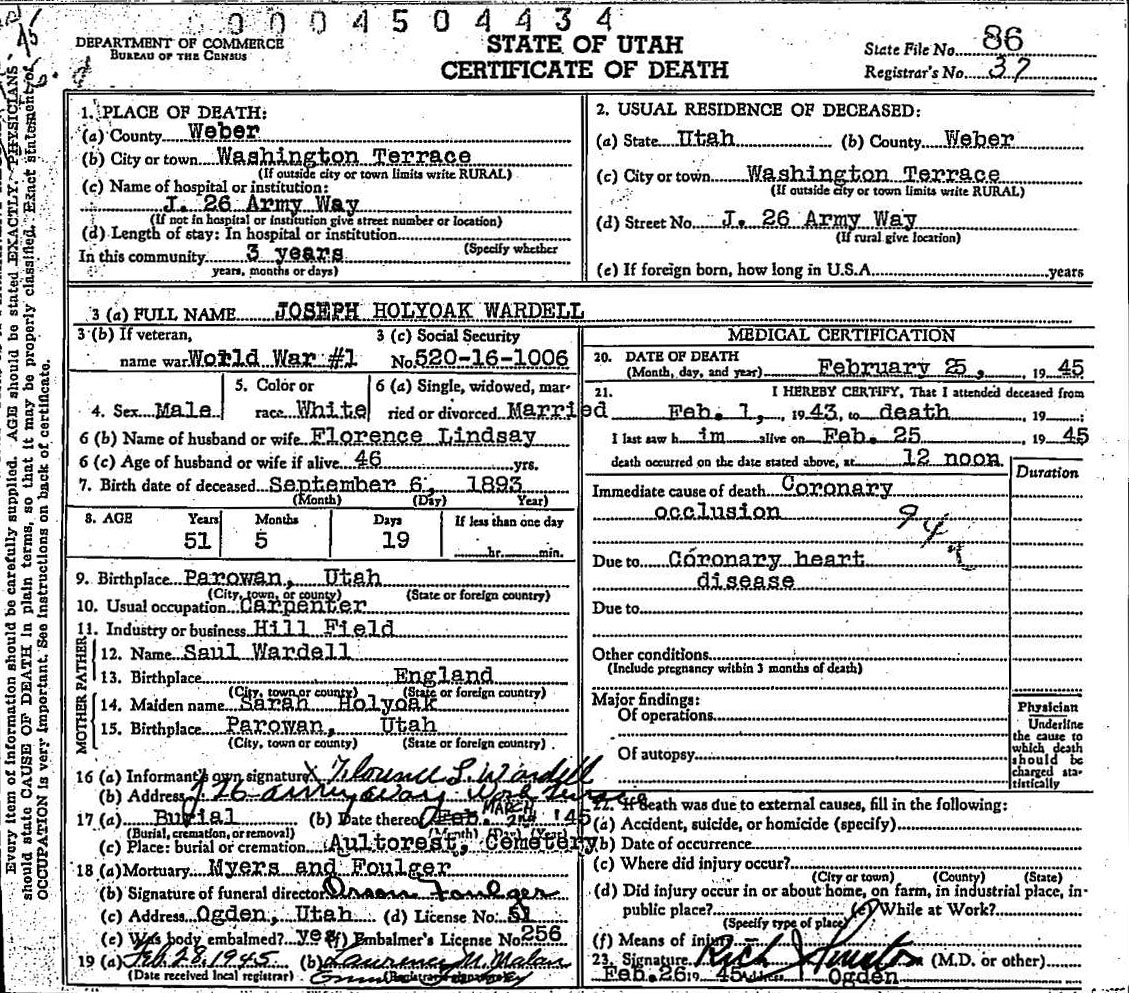 0004504434
DEPARTMENT OF COMMERCE
BUREAU OF THE CENSUS
STATE OF UTAH
CERTIFICATE OF DEATH
State File No. 86
Registrar's No. 37
Every item of information should be carefully supplied. AGE should be stated EXACTLY. PHYSICIANS
should state CAUSE OF DEATH in plain terms, so that it may be properly classified. Exact statement of
OCCUPATION is very important. See instructions on back of certificate.
1. PLACE OF DEATH:
(a) County Weber
(b) City or town Washington Terrace
(If outside city or town limits write RURAL)
(c) Name of hospital or institution:
J. 26 Army Way
(If not in hospital or institution give street number or location)
(d) Length of stay: In hospital or institution
(Specify whether
In this community 3 years
years, months or days)
2. USUAL RESIDENCE OF DECEASED:
(a) State Utah (b) County Weber
(c) City or town Washington Terrace
(If outside city or town limits write RURAL)
(d) Street No. J. 26 Army Way
(If rural give location)
(e) If foreign born, how long in U.S.A. years
3 (a) FULL NAME JOSEPH HOLYOAK WARDELL
3 (b) If veteran,
name war World War #1
3 (c) Social Security
No. 520-16-1006
4. Sex Male
5. Color or
race White
6 (a) Single, widowed, mar-
ried or divorced Married
6 (b) Name of husband or wife Florence Lindsay
6 (c) Age of husband or wife if alive 46 yrs.
7. Birth date of deceased September 6, 1893
(Month) (Day) Year)
8. AGE Years Months Days If less than one day
51 5 19 hr. min.
9. Birthplace Parowan, Utah
(City, town, or county) (State or foreign country)
10. Usual occupation Carpenter
11. Industry or business Hill Field
MOTHER FATHER
12. Name Saul Wardell
13. Birthplace England
(City, town or county) (State or foreign country)
14. Maiden name Sarah Holyoak
15. Birthplace Parowan, Utah
(City, town or county) (State or foreign country)
16 (a) Informant's own signature X Florence L. Wardell
(b) Address J 26 Army Way
17 (a) Burial (b) Date thereof Feb. MARCH 2nd '45
(Burial, cremation, or removal) (Month) (Day) (Year)
(c) Place: burial or cremation Aultorest, Cemetery
18 (a) Mortuary Myers and Foulger
(b) Signature of funeral director Orson Foulger
(c) Address Ogden, Utah (d) License No. 51
(e) Was body embalmed? yes (f) Embalmer's License No. 256
19 (a) Feb 28. 1945 (b) Laurence M. Malan
(Date received local registrar)
MEDICAL CERTIFICATION
20. DATE OF DEATH
(Month, day, and year) February 25, 19 45
21. I HEREBY CERTIFY, That I attended deceased from
Feb. 1, 1943, to death 19
I last saw him alive on Feb. 25, 19 45
death occurred on the date stated above, at 12 noon
Duration
Immediate cause of death Coronary
occlusion
94
Due to Coronary heart
disease
Due to
Other conditions
(Include pregnancy within 3 months of death)
Major findings:
Of operations
Of autopsy
Physician
Underline
the cause to
which death
should be
charged sta-
tistically
22. If death was due to external causes, fill in the following:
(a) Accident, suicide, or homicide (specify)
(b) Date of occurrence
(c) Where did injury occur?
(City or town) (County) (State)
(d) Did injury occur in or about home, on farm, in industrial place, in-
public place? (e) While at Work?
(Specify type of place)
(f) Means of injury
23. Signature Rich (M.D. or other)
Feb. 26 19 45 Address Ogden